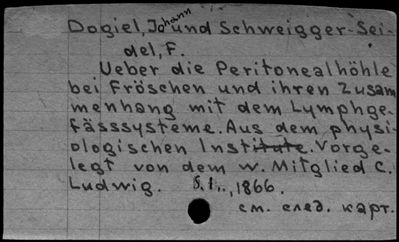 Dogiel, Johann und Schweigger-Sei-
del, F.
Ueber die Peritonealhöhle
bei Fröschen und ihren Zusam
menhang mit dem Lymphge-
fässsysteme. Aus dem physi-
ologischen Institute. Vorge-
legt von dem w. Mitglied C.
Ludwig. 1866.
см. след. карт.